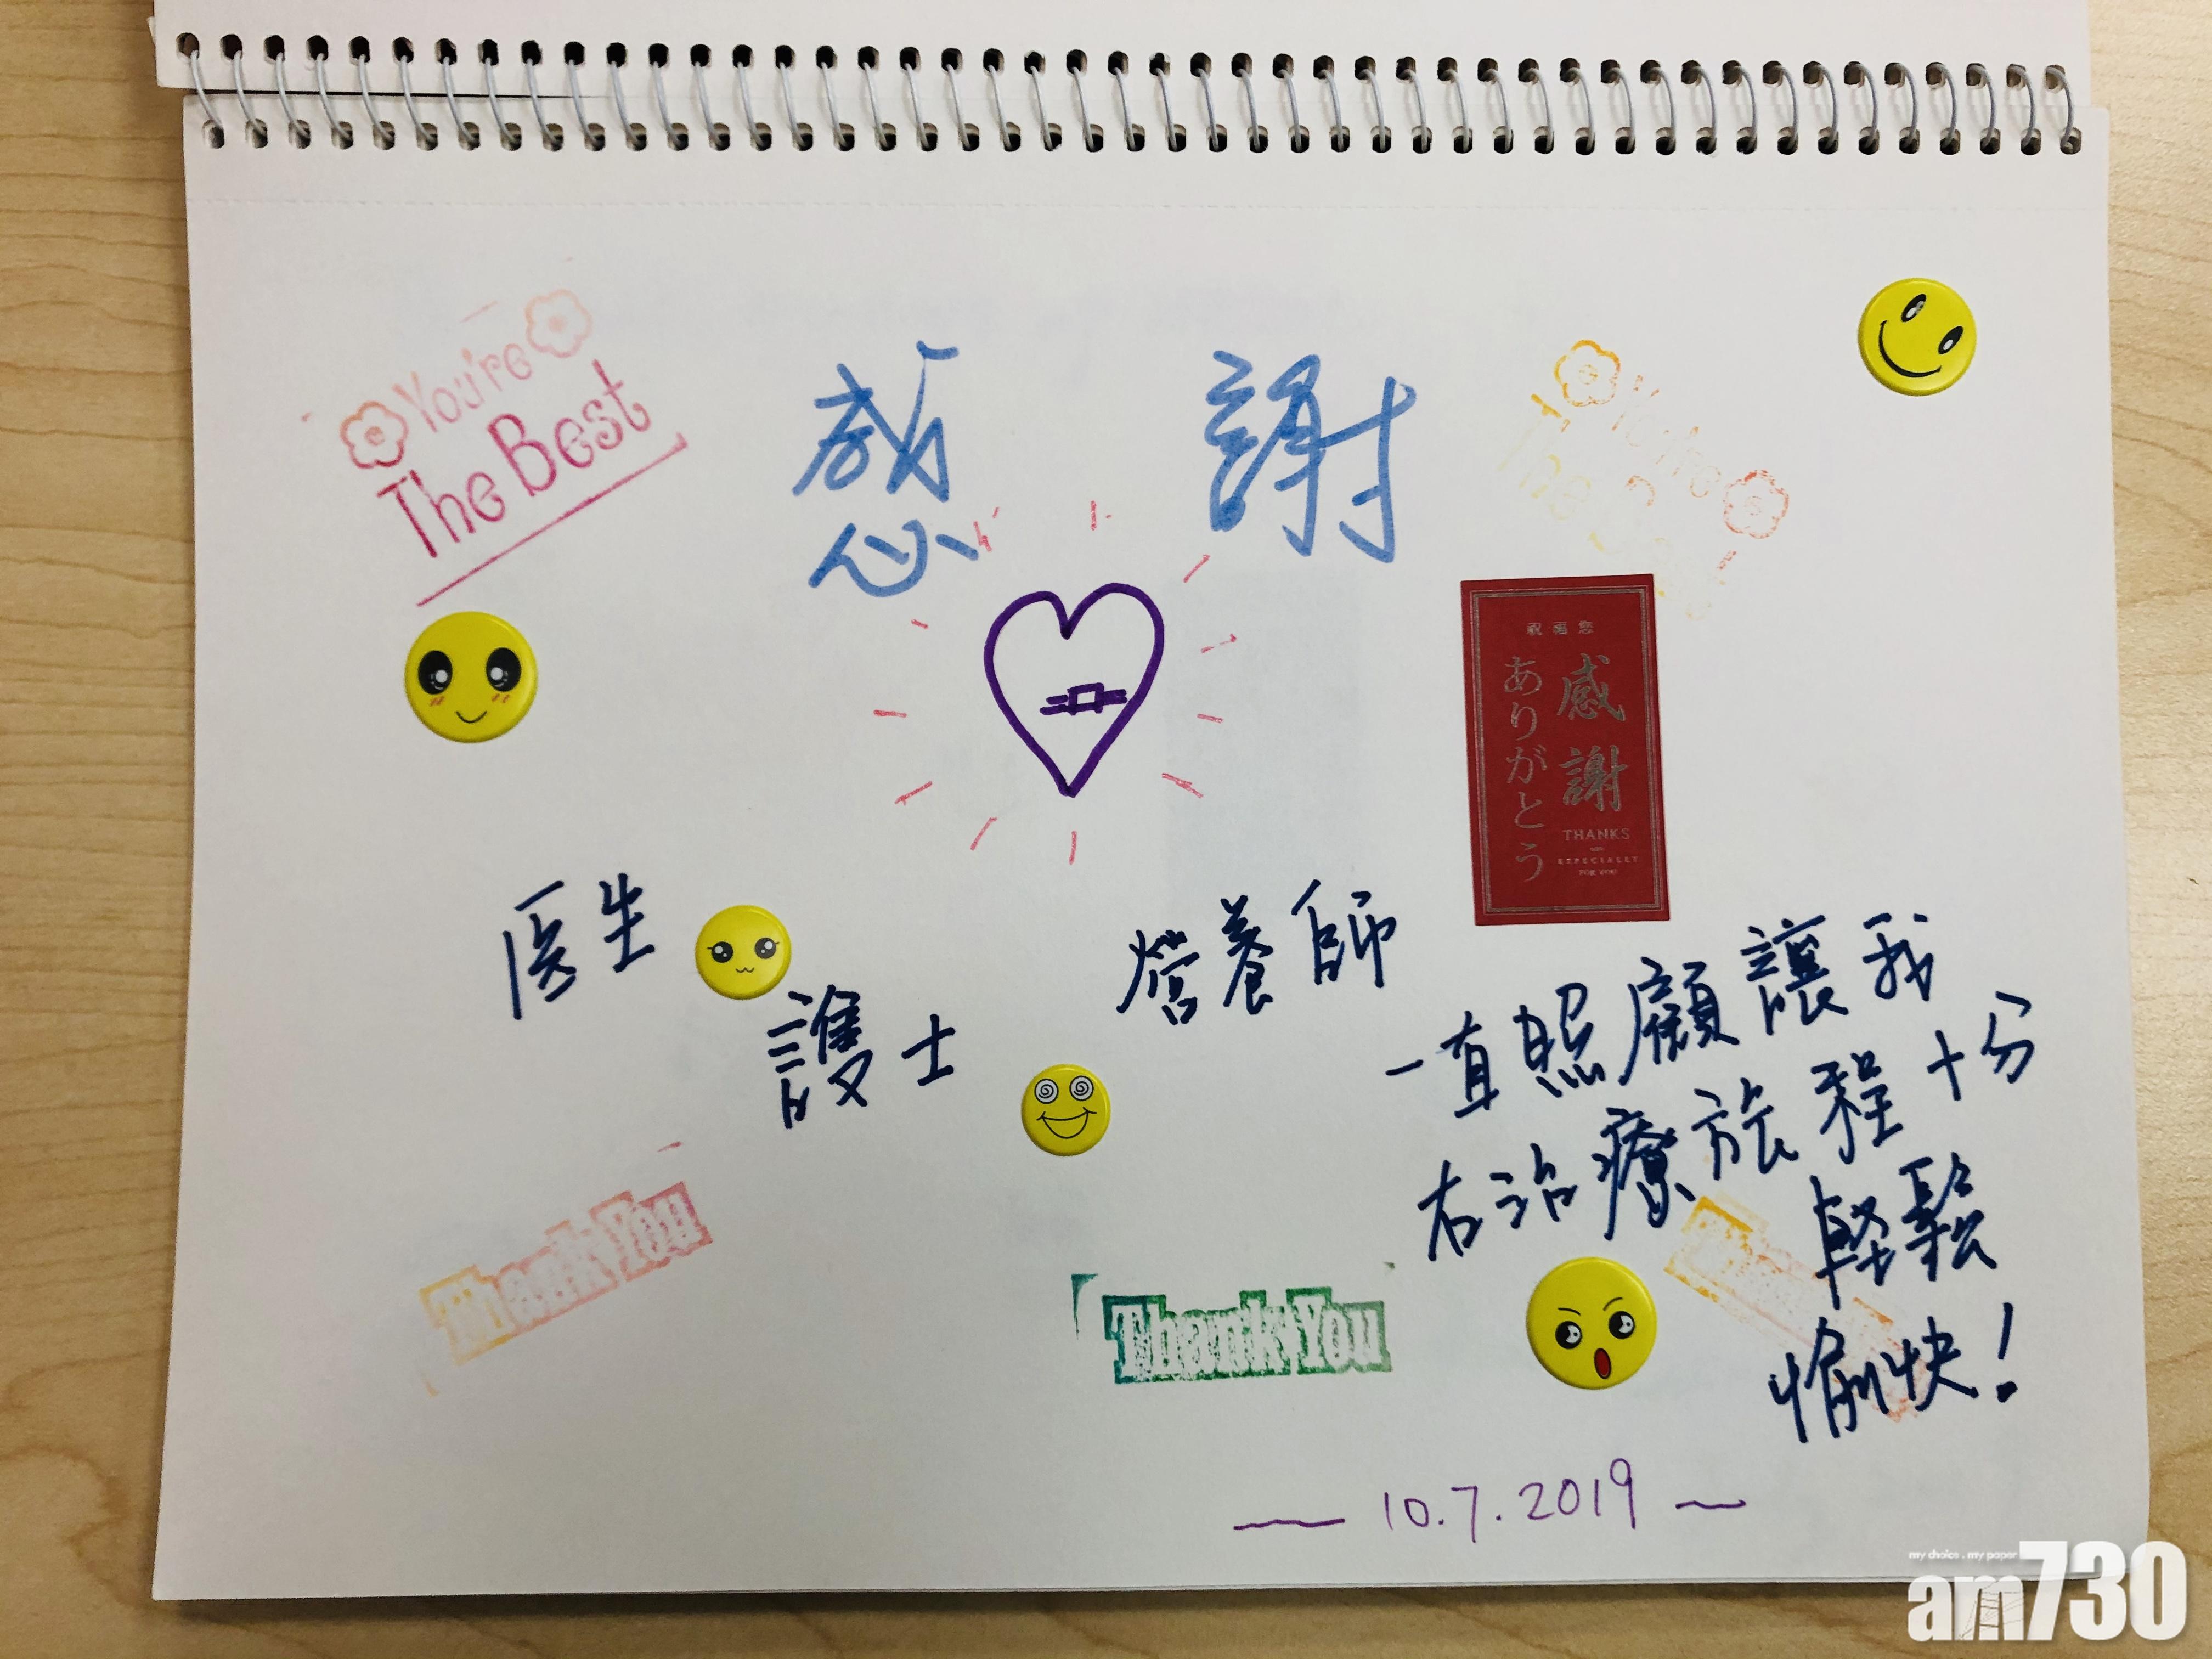 You're
The Best
感謝
You're
The Best
祝福您
感謝
ありがとう
THANKS
ESPECIALLY
FOR YOU
医生
護士
營養師
一直照顧讓我
在治療旅程十分
輕鬆
愉快！
Thank You
Thank You
10.7.2019
my choice . my paper
am730